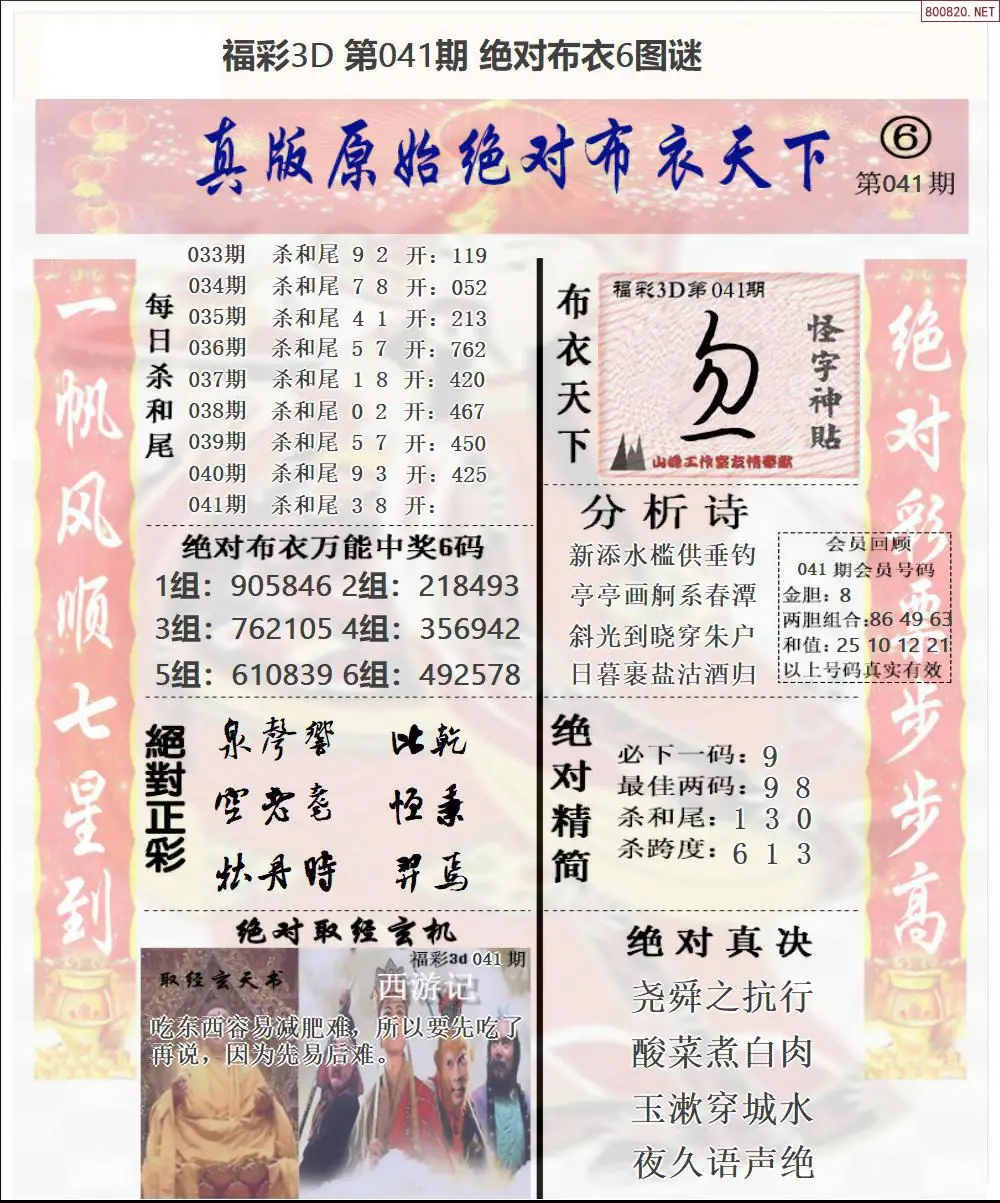 800820.NET
福彩3D 第041期 绝对布衣6图谜
真版原始绝对布衣天下
⑥
第041期
一帆风顺七星到
每日杀和尾
033期 杀和尾 9 2 开: 119
034期 杀和尾 7 8 开: 052
035期 杀和尾 4 1 开: 213
036期 杀和尾 5 7 开: 762
037期 杀和尾 1 8 开: 420
038期 杀和尾 0 2 开: 467
039期 杀和尾 5 7 开: 450
040期 杀和尾 9 3 开: 425
041期 杀和尾 3 8 开:
绝对布衣万能中奖6码
1组：905846 2组：218493
3组：762105 4组：356942
5组：610839 6组：492578
絕對正彩
泉聲響 比乾
空老耄 恒秉
牡丹時 羿焉
绝对取经玄机
福彩3d 041 期
取经玄天书
西游记
吃东西容易减肥难，所以要先吃了
再说，因为先易后难。
布衣天下
福彩3D第041期
怪字神贴
山峰工作室友情奉献
分析诗
新添水槛供垂钓
亭亭画舸系春潭
斜光到晓穿朱户
日暮裹盐沽酒归
会员回顾
041 期会员号码
金胆：8
两胆组合:86 49 63
和值：25 10 12 21
以上号码真实有效
绝对精简
必下一码：9
最佳两码：9 8
杀和尾：1 3 0
杀跨度：6 1 3
绝对真决
尧舜之抗行
酸菜煮白肉
玉漱穿城水
夜久语声绝
绝对彩票步步高